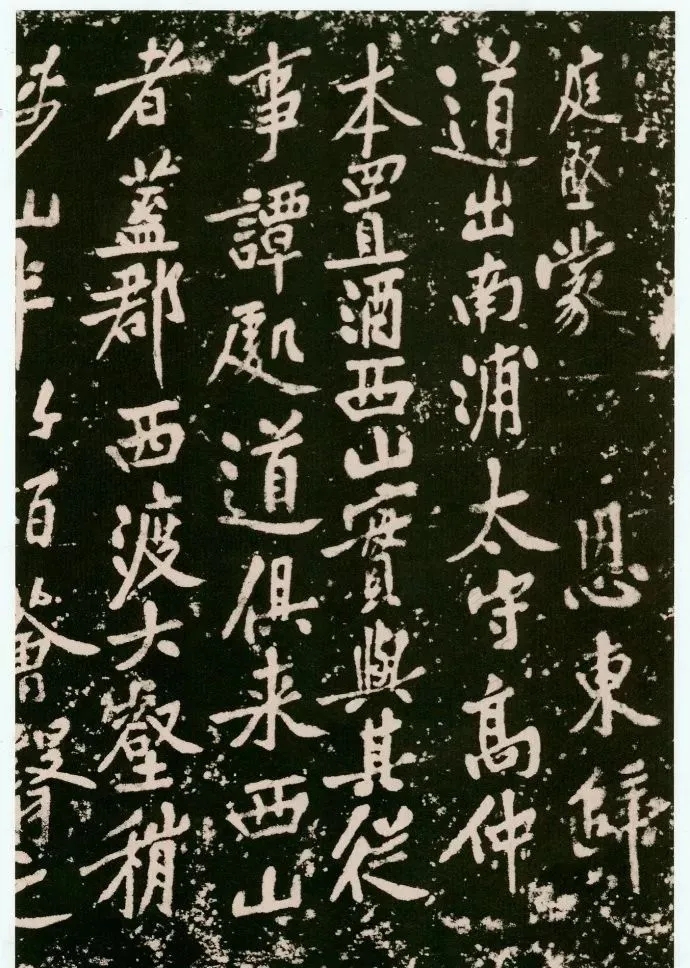 庭堅蒙恩東歸
道出南浦太守高仲
本置酒西山實與其從
事譚處道俱来西山
者蓋郡西渡大壑稍
陟山半竹柏薈翳之